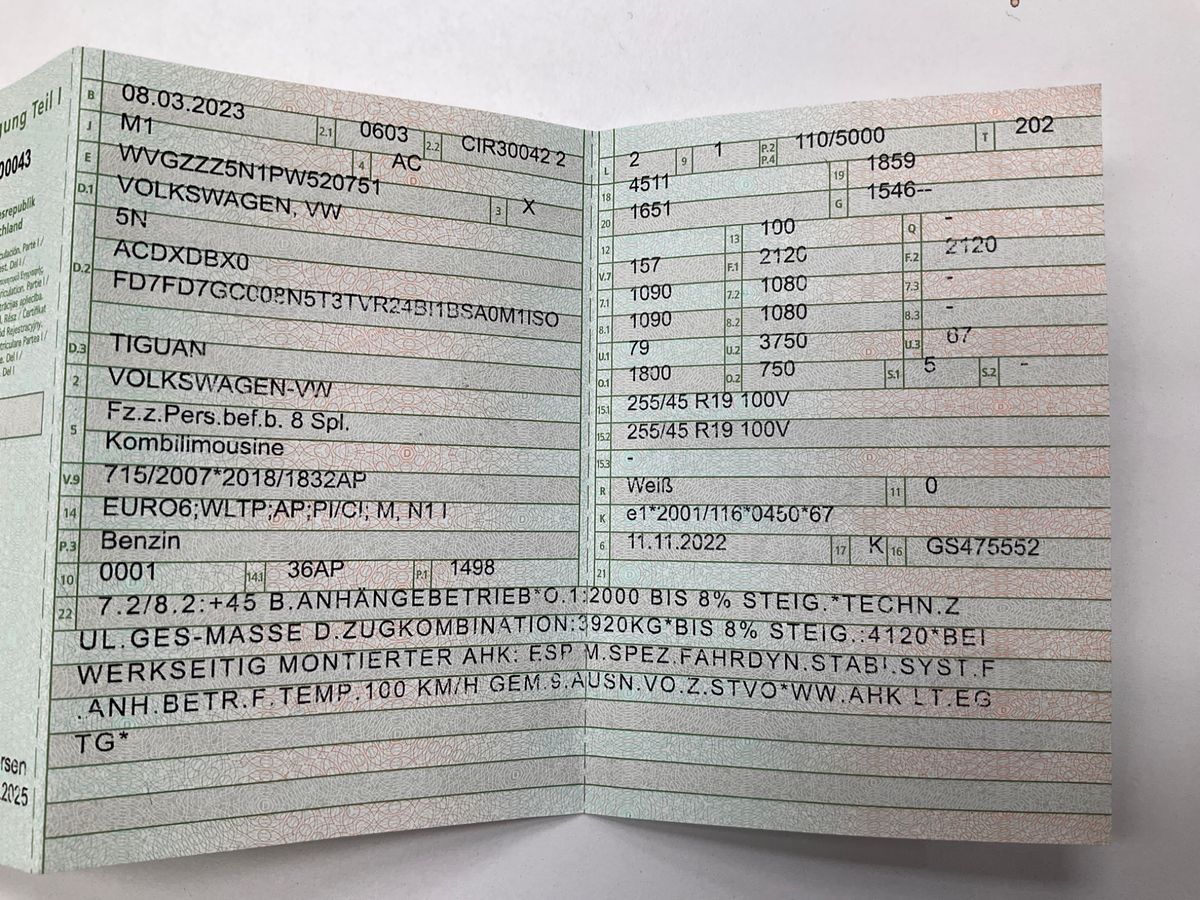 gung Teil I
00043
esrepublik
chland
rsen
.2025
B 08.03.2023 2.1 0603 2.2 CIR30042 2
J M1 4 AC
E WVGZZZ5N1PW520751 3 X
D.1 VOLKSWAGEN, VW
D.2 5N
ACDXDBX0
FD7FD7GC008N5T3TVR24BI1BSA0M1ISO
D.3 TIGUAN
2 VOLKSWAGEN-VW
5 Fz.z.Pers.bef.b. 8 Spl.
Kombilimousine
V.9 715/2007*2018/1832AP
14 EURO6;WLTP;AP;PI/CI; M, N1 I
P.3 Benzin
10 0001 14.1 36AP P.1 1498
L 2 9 1 P.2 P.4 110/5000 T 202
18 4511 19 1859
20 1651 G 1546--
12 13 100 Q -
V.7 157 F.1 2120 F.2 2120
7.1 1090 7.2 1080 7.3 -
8.1 1090 8.2 1080 8.3 -
U.1 79 U.2 3750 U.3 67
O.1 1800 O.2 750 S.1 5 S.2 -
15.1 255/45 R19 100V
15.2 255/45 R19 100V
15.3 -
R Weiß 11 0
K e1*2001/116*0450*67
6 11.11.2022 17 K 16 GS475552
21
22 7.2/8.2:+45 B.ANHÄNGEBETRIEB*O.1:2000 BIS 8% STEIG.*TECHN.Z
UL.GES-MASSE D.ZUGKOMBINATION:3920KG*BIS 8% STEIG.:4120*BEI
WERKSEITIG MONTIERTER AHK: ESP M.SPEZ.FAHRDYN.STABI.SYST.F
.ANH.BETR.F.TEMP.100 KM/H GEM.9.AUSN.VO.Z.STVO*WW.AHK LT.EG
TG*